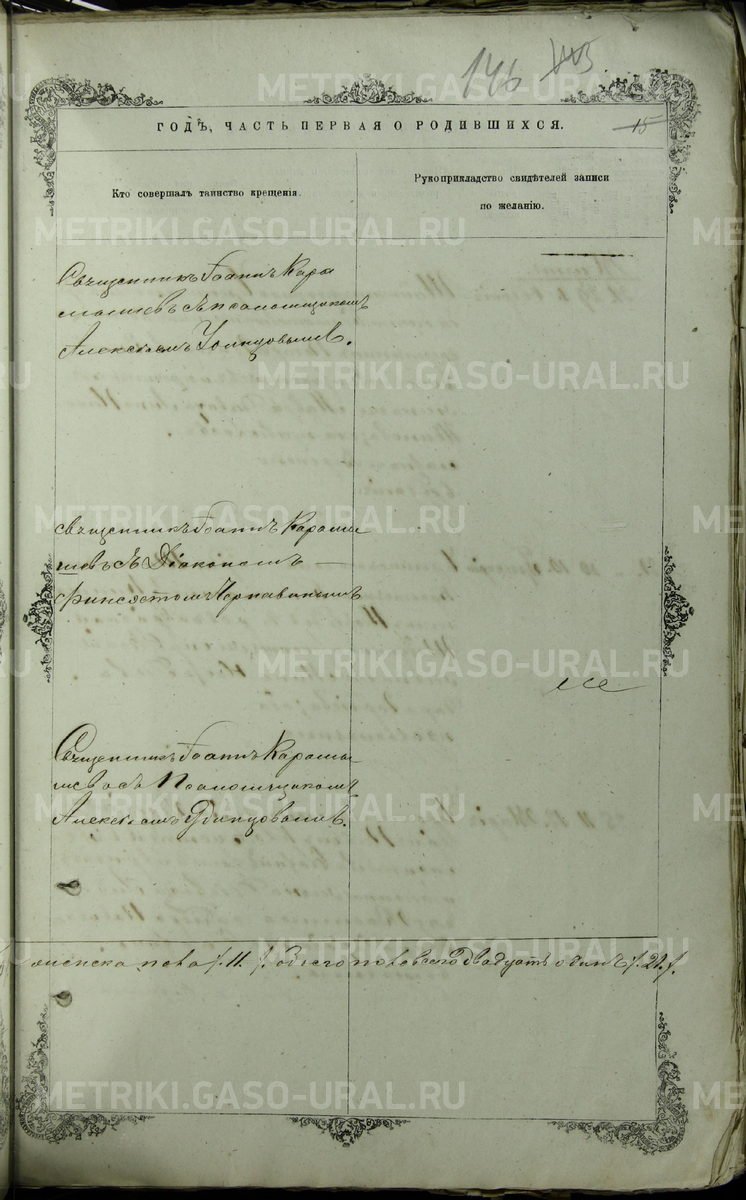 146
15
ГОДЪ, ЧАСТЬ ПЕРВАЯ О РОДИВШИХСЯ.
Кто совершалъ таинство крещенія.
Рукоприкладство свидѣтелей записи
по желанію.
Священникъ Іоаннъ Кара
мышевъ съ псаломщикомъ
Алексѣемъ Удинцовымъ.
Священникъ Іоаннъ Карамы
шевъ съ Діакономъ
Священникъ Іоаннъ Карамы
шевъ съ Псаломщикомъ
Алексѣемъ Удинцовымъ.
пола /.11./. обоего пола всего двадцать одинъ /.21./.
METRIKI.GASO-URAL.RU